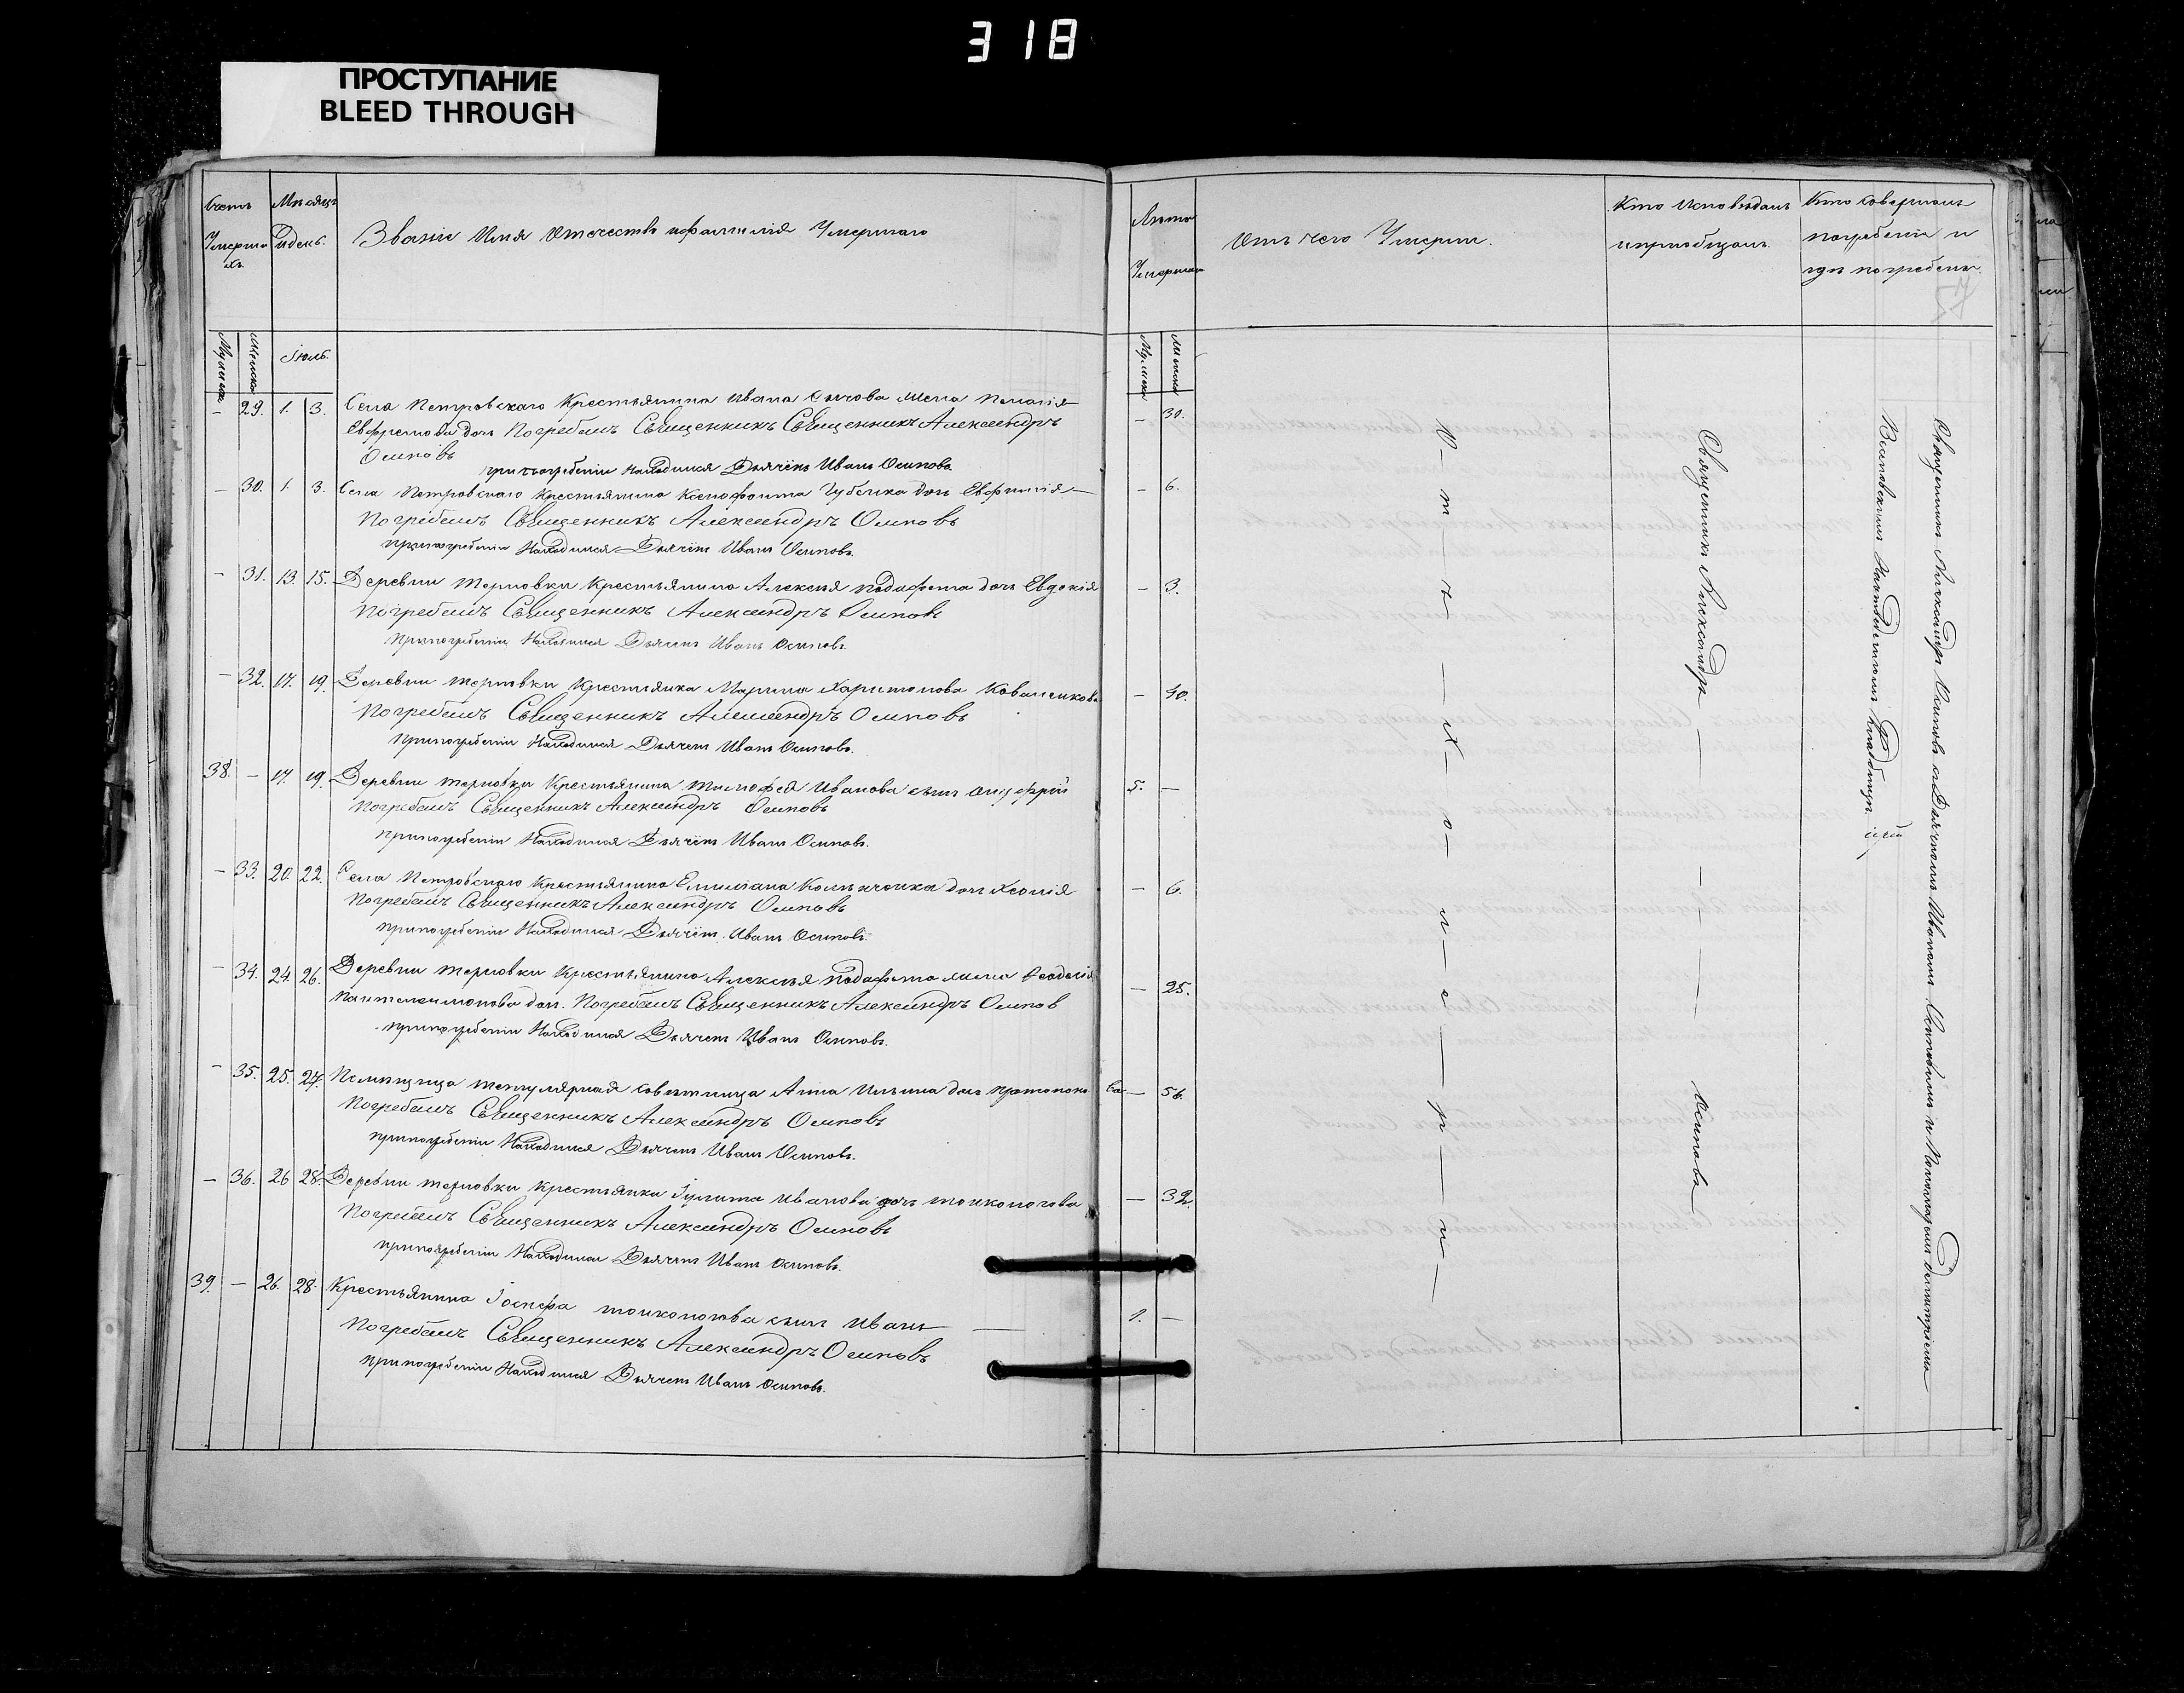 318
ПРОСТУПАНИЕ
BLEED THROUGH
Счетъ
Умерши
хъ.
Мѣсяцъ
и день.
Званіе Имя Отечество и фамилія Умершаго
Лѣта
Умершаго
Отъ чего Умерли.
Кто Исповѣдалъ
и пріобщалъ.
Кто Совершалъ
погребеніе и
гдѣ погребены.
Мужеска
Женска
Іюль.
Мужеска
Женска
– 29. 1. 3. Села Петровскаго Крестьянина Ивана Сычова жена Пелагія – 30.
Ефремова дочь Погребалъ Священникъ Священникъ Александръ
Осиповъ
при погребеніи Находился Дьячекъ Иванъ Осиповъ.
– 30. 1. 3. Села Петровскаго Крестьянина Ксенофонта Губенка дочь Евфимія – 6.
Погребалъ Священникъ Александръ Осиповъ
при погребеніи Находился Дьячекъ Иванъ Осиповъ.
– 31. 13. 15. Деревни Терновки Крестьянина Алексѣя дочь Евдокія – 3.
Погребалъ Священникъ Александръ Осиповъ
При погребеніи Находился Дьячекъ Иванъ Осиповъ.
– 32. 17. 19. Деревни Терновки Крестьянка Марина Харитонова Коваленкова – 40.
Погребалъ Священникъ Александръ Осиповъ
При погребеніи Находился Дьячекъ Иванъ Осиповъ.
38. – 17. 19. Деревни Терновки Крестьянина Тимофея Иванова сынъ 5. –
Погребалъ Священникъ Александръ Осиповъ
При погребеніи Находился Дьячекъ Иванъ Осиповъ.
– 33. 20. 22. Села Петровскаго Крестьянина Емиліана дочь Хеонія – 6.
Погребалъ Священникъ Александръ Осиповъ
при погребеніи Находился Дьячекъ Иванъ Осиповъ.
– 34. 24. 26. Деревни Терновки Крестьянина Алексѣя жена Феодосія – 25.
Пантелеимонова дочь. Погребалъ Священникъ Александръ Осипов
при погребеніи Находился Дьячекъ Иванъ Осиповъ.
– 35. 25. 27. Помѣщица титулярная совѣтница Анна Ильина дочь Протопопова – 56.
Погребалъ Священникъ Александръ Осиповъ
при погребеніи Находился Дьячекъ Иванъ Осиповъ.
– 36. 26 28. Деревни Терновки Крестьянка Іулита Иванова дочь Тонконогова – 32.
Погребалъ Священникъ Александръ Осиповъ
при погребеніи Находился Дьячекъ Иванъ Осиповъ.
39. – 26. 28. Крестьянина Іосифа Тонконогова сынъ Иванъ 1. –
Погребалъ Священникъ Александръ Осиповъ
При погребеніи Находился Дьячекъ Иванъ Осиповъ.
О – т – ъ – х – о – л – е – р – и –
Священникъ Александръ – – – – Осиповъ
Священникъ Александръ Осиповъ съ Дьячкомъ Иваномъ Осиповымъ и Пономаремъ
на приходскомъ кладбищѣ